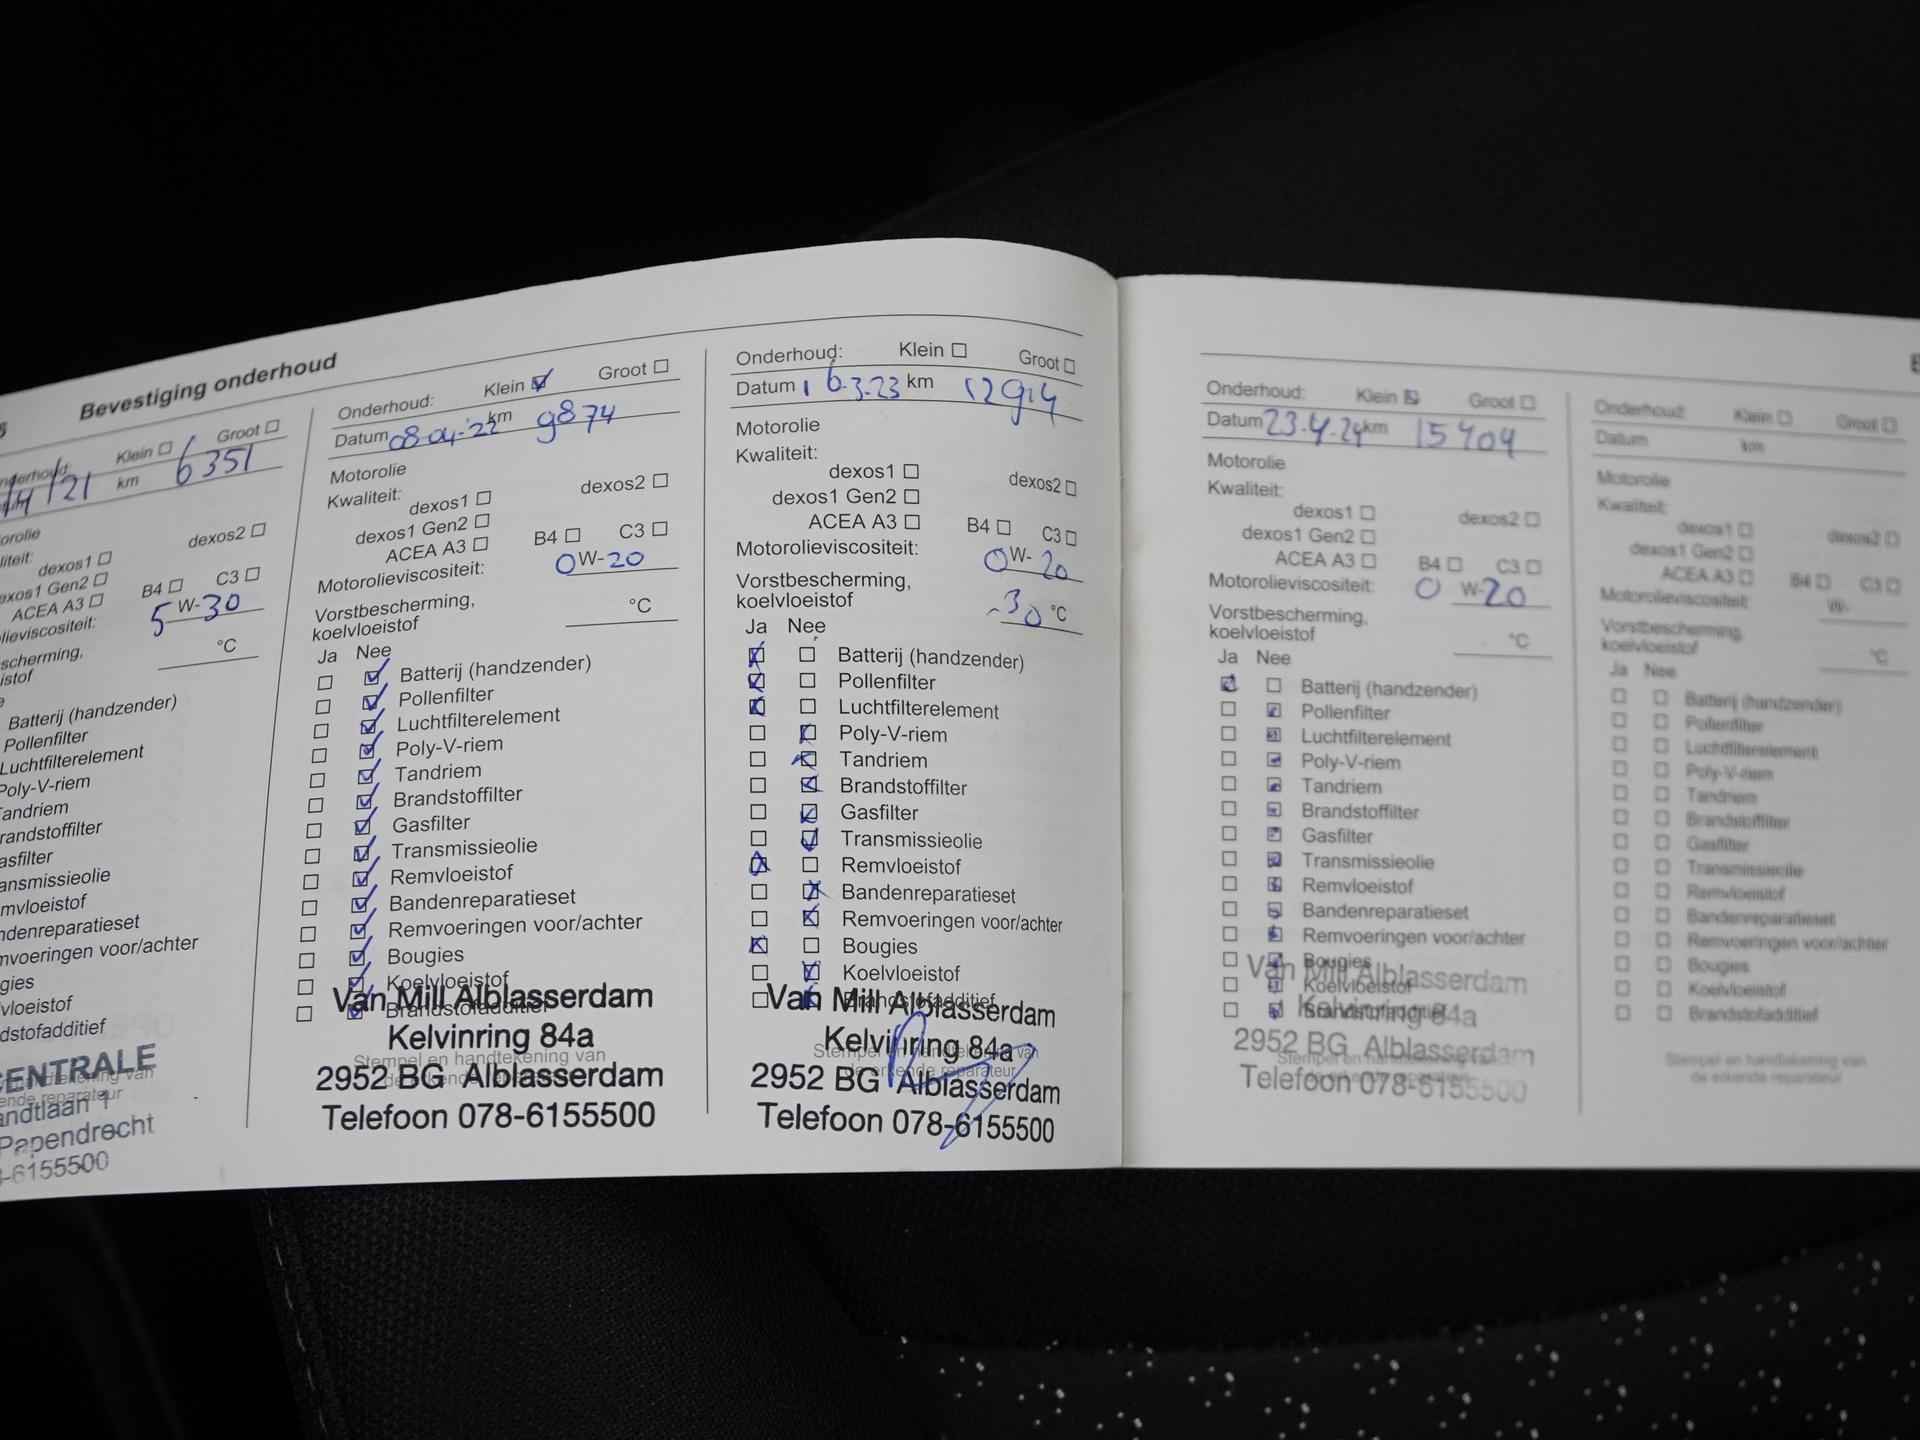 Bevestiging onderhoud
Klein Groot
/21 km 6351
dexos1 dexos2
Gen2
ACEA A3 B4 C3
5 W-30
°C
Batterij (handzender)
Pollenfilter
Luchtfilterelement
Poly-V-riem
Tandriem
Onderhoud: Klein Groot
Datum 08-04-'22 km 9874
Motorolie
Kwaliteit:
dexos1 dexos2
dexos1 Gen2
ACEA A3 B4 C3
Motorolieviscositeit: 0 W-20
Vorstbescherming,
koelvloeistof °C
Ja Nee
Batterij (handzender)
Pollenfilter
Luchtfilterelement
Poly-V-riem
Tandriem
Brandstoffilter
Gasfilter
Transmissieolie
Remvloeistof
Bandenreparatieset
Remvoeringen voor/achter
Bougies
Koelvloeistof
Brandstofadditief
Van Mill Alblasserdam
Kelvinring 84a
Stempel en handtekening van
de erkende reparateur
2952 BG Alblasserdam
Telefoon 078-6155500
Onderhoud: Klein Groot
Datum 16-3-23 km 12914
Motorolie
Kwaliteit:
dexos1 dexos2
dexos1 Gen2
ACEA A3 B4 C3
Motorolieviscositeit: 0 W-20
Vorstbescherming,
koelvloeistof -30 °C
Ja Nee
Batterij (handzender)
Pollenfilter
Luchtfilterelement
Poly-V-riem
Tandriem
Brandstoffilter
Gasfilter
Transmissieolie
Remvloeistof
Bandenreparatieset
Remvoeringen voor/achter
Bougies
Koelvloeistof
Brandstofadditief
Van Mill Alblasserdam
Kelvinring 84a
Stempel en handtekening van
de erkende reparateur
2952 BG Alblasserdam
Telefoon 078-6155500
Onderhoud: Klein Groot
Datum 23-4-24 km 15404
Motorolie
Kwaliteit:
dexos1 dexos2
dexos1 Gen2
ACEA A3 B4 C3
Motorolieviscositeit: 0 W-20
Vorstbescherming,
koelvloeistof °C
Ja Nee
Batterij (handzender)
Pollenfilter
Luchtfilterelement
Poly-V-riem
Tandriem
Brandstoffilter
Gasfilter
Transmissieolie
Remvloeistof
Bandenreparatieset
Remvoeringen voor/achter
Bougies
Koelvloeistof
Brandstofadditief
Van Mill Alblasserdam
Kelvinring 84a
Stempel en handtekening van
de erkende reparateur
2952 BG Alblasserdam
Telefoon 078-6155500
Onderhoud: Klein Groot
Datum km
Motorolie
Kwaliteit:
dexos1 dexos2
dexos1 Gen2
ACEA A3 B4 C3
Motorolieviscositeit: W-
Vorstbescherming,
koelvloeistof °C
Ja Nee
Batterij (handzender)
Pollenfilter
Luchtfilterelement
Poly-V-riem
Tandriem
Brandstoffilter
Gasfilter
Transmissieolie
Remvloeistof
Bandenreparatieset
Remvoeringen voor/achter
Bougies
Koelvloeistof
Brandstofadditief
Stempel en handtekening van
de erkende reparateur
Papendrecht